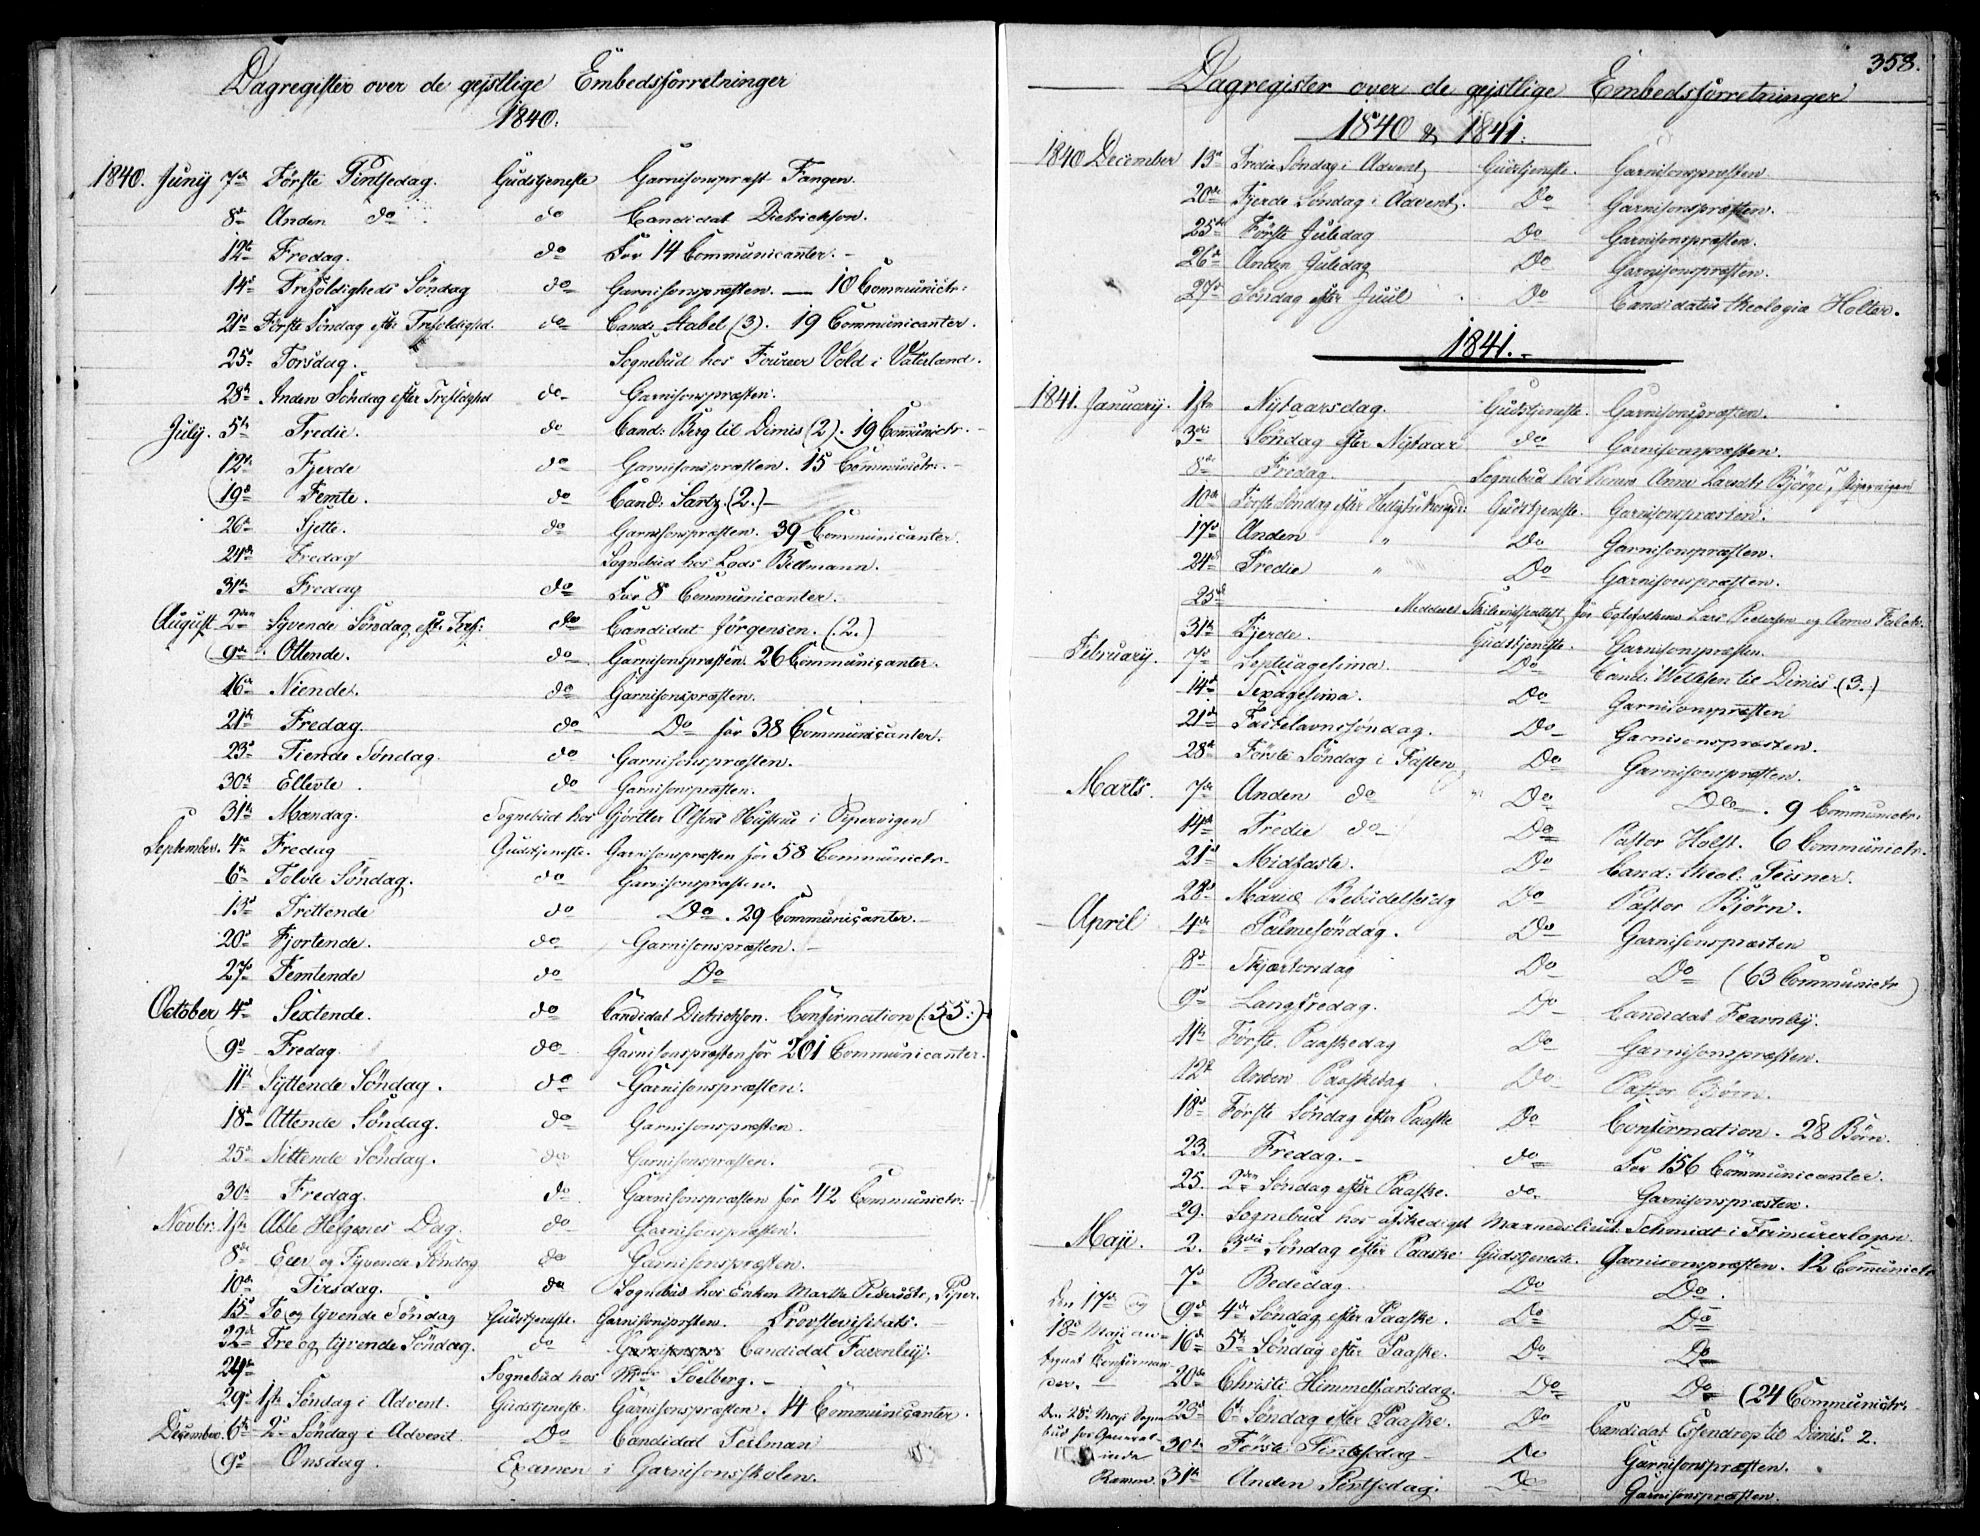 Dagregister over de gejstlige Embedsforretninger
1840.
1840. Juny 7de Förste Pintsedag. Gudstjeneste Garnisonspræst Fangen.
8de Anden do do Candidat Dietrichson.
12te Fredag. do For 14 Communicanter. -
14de Trefoldigheds Söndag do Garnisonspræsten. — 10 Communictr:
21de Förste Söndag efter Trefoldighd. do Cand: Stabel (3). 19 Communicanter.
25de Torsdag. Sognebud hos Fourer Vold i Vaterland.
28de Anden Söndag efter Trefoldighd do Garnisonspræsten.
July. 5te Tredie. do Cand: Berg til Dimis (2). 19 Communictr. -
12te Fjerde do Garnisonspræsten. 15 Communictr. -
19de Femte. do Cand: Sartz. (2.) -
26de Sjette. do Garnisonspræsten. 39 Communicanter.
24de Fredag Sognebud hos Lods Billmann.
31te Fredag do For 8 Communicanter.
August 2den Syvende Söndag eft. Tref: do Candidat Jörgensen. (.2.)
9de Ottende. do Garnisonspræsten. 26 Communicanter.
16de Niende. do Garnisonspræsten.
21de Fredag. do Do for 38 Communicanter.
23de Tiende Söndag. do Garnisonspræsten.
30te Ellevte. do Garnisonspræsten.
31te Mandag. Sognebud hos Gjörtler Olsens Hustrue i Pipervigen
September. 4de Fredag Gudstjeneste. Garnisonspræsten for 58 Communictr.
6te Tolvte Söndag. do Garnisonspræsten.
13de Trettende do Do. 29 Communicanter. -
20de Fjortende. do Garnisonspræsten. -
27de Femtende do Do
October 4de Sextende. do Candidat Dietrichson. Confirmation (.55.)
9de Fredag. do Garnisonspræsten for 201 Communicanter.
11te Syttende Söndag. do Garnisonspræsten.
18de Attende Söndag. do Garnisonspræsten.
25de Nittende Söndag. do Garnisonspræsten.
30te Fredag. do Garnisonspræsten for 42 Communictr:
Novbr. 1ste Alle Helgenes Dag. do Garnisonspræsten.
8de Een og Tyvende Söndag do Garnisonspræsten.
10de Tirsdag. do Sognebud hos Enken Marthe Pedersdtr, Piper.
15de To og tyvende Söndag Gudstjeneste. Garnisonspræsten. Provstevisitats.
22de Tre og tyvende Söndag. do Candidat Fearnley.
24de Sognebud hos Solberg. -
29de 1ste Söndag i Advent. Gudstjeneste. Garnisonspræsten. 14 Communicanter.
December. 6te 2den Söndag i Advent Do Candidat Teilman
9de Onsdag. Examen i Garnisonsskolen.
358.
Dagregister over de gejstlige Embedsforretninger
1840 & 1841.
1840 December 13de Tredie Söndag i Advent Gudstjeneste. Garnisonspræsten
20de Fjerde Söndag i Advent. Do Garnisonspræsten.
25de Förste Juledag Do Garnisonspræsten.
26de Anden Juledag Do Garnisonspræsten.
27de Söndag efter Juul Do Candidatus theologia Holter.
1841. -
1841. January. 1ste Nytaarsdag. Gudstjeneste. Garnisonspræsten.
3die Söndag efter Nytaar do Garnisonspræsten.
8de Fredag. Sognebud hos Anne Pipervigen
10de Förste Söndag efter Hellig tre Konger: Gudstjeneste. Garnisonspræsten.
17de Anden " Do Garnisonspræsten.
24de Tredie " Do Garnisonspræsten.
25de Meddeelt Skilsmisseattest for Egtefolkene Lars Pedersen og Anne Falch.
31te Fjerde. Gudstjeneste. Garnisonspræsten.
February. 7de Septuagesima. Do Cand: til Dimis (3.)
14de Sexagesima. Do Garnisonspræsten
21de Fastelavnssöndag. Do Garnisonspræsten.
28de Förste Söndag i Fasten Do Garnisonspræsten.
Marts. 7de Anden do Do Do. 9 Communictr.
14de Tredie do Do Pastor Holst. 6 Communictr.
21de Midfaste. Do Cand: theol: Teisner.
28de Mariæ Bebudelsesdg Do Pastor Björn.
April 4de Palmesöndag. Do Garnisonspræsten
8de Skjærtorsdag Do Do (63 Communictr)
9de Langfredag. Do Candidat Fearnley.
11te Förste Paaskedag Do Garnisonspræsten.
12te Anden Paaskedag Do Pastor Björn.
18de Förste Söndag efter Paaske Do Confirmation. 28 Börn.
23. Fredag. - do For 156 Communicanter.
25. 2den Söndag efter Paaske. do Garnisonspræsten.
29. Sognebud hos afskediget Maanedslieut: Schmidt i Frimurerlogen.
Maji. 2. 3die Söndag efter Paaske Gudstjeneste. Garnisonspræsten. 12 Communictr
7de Bededag. Do Do.
Den 17de og 9de 4de Söndag efter Paaske. Do Do
18de Maji an- 16de 5te Söndag efter Paaske. Do Do
tegnet Confirman-
der. - 20de Christi Himmelfartsdag. Do Do (24 Communictr.
Den 28de Maji Sogne- 23de 6te Söndag efter Paaske. Do Candidat Essendrop til Dimis. 2.
bud hos General- 30te Förste Pintsedag Do Garnisonspræsten.
inde
Ramm. 31te Anden Pintsedag. Do Garnisonspræsten.